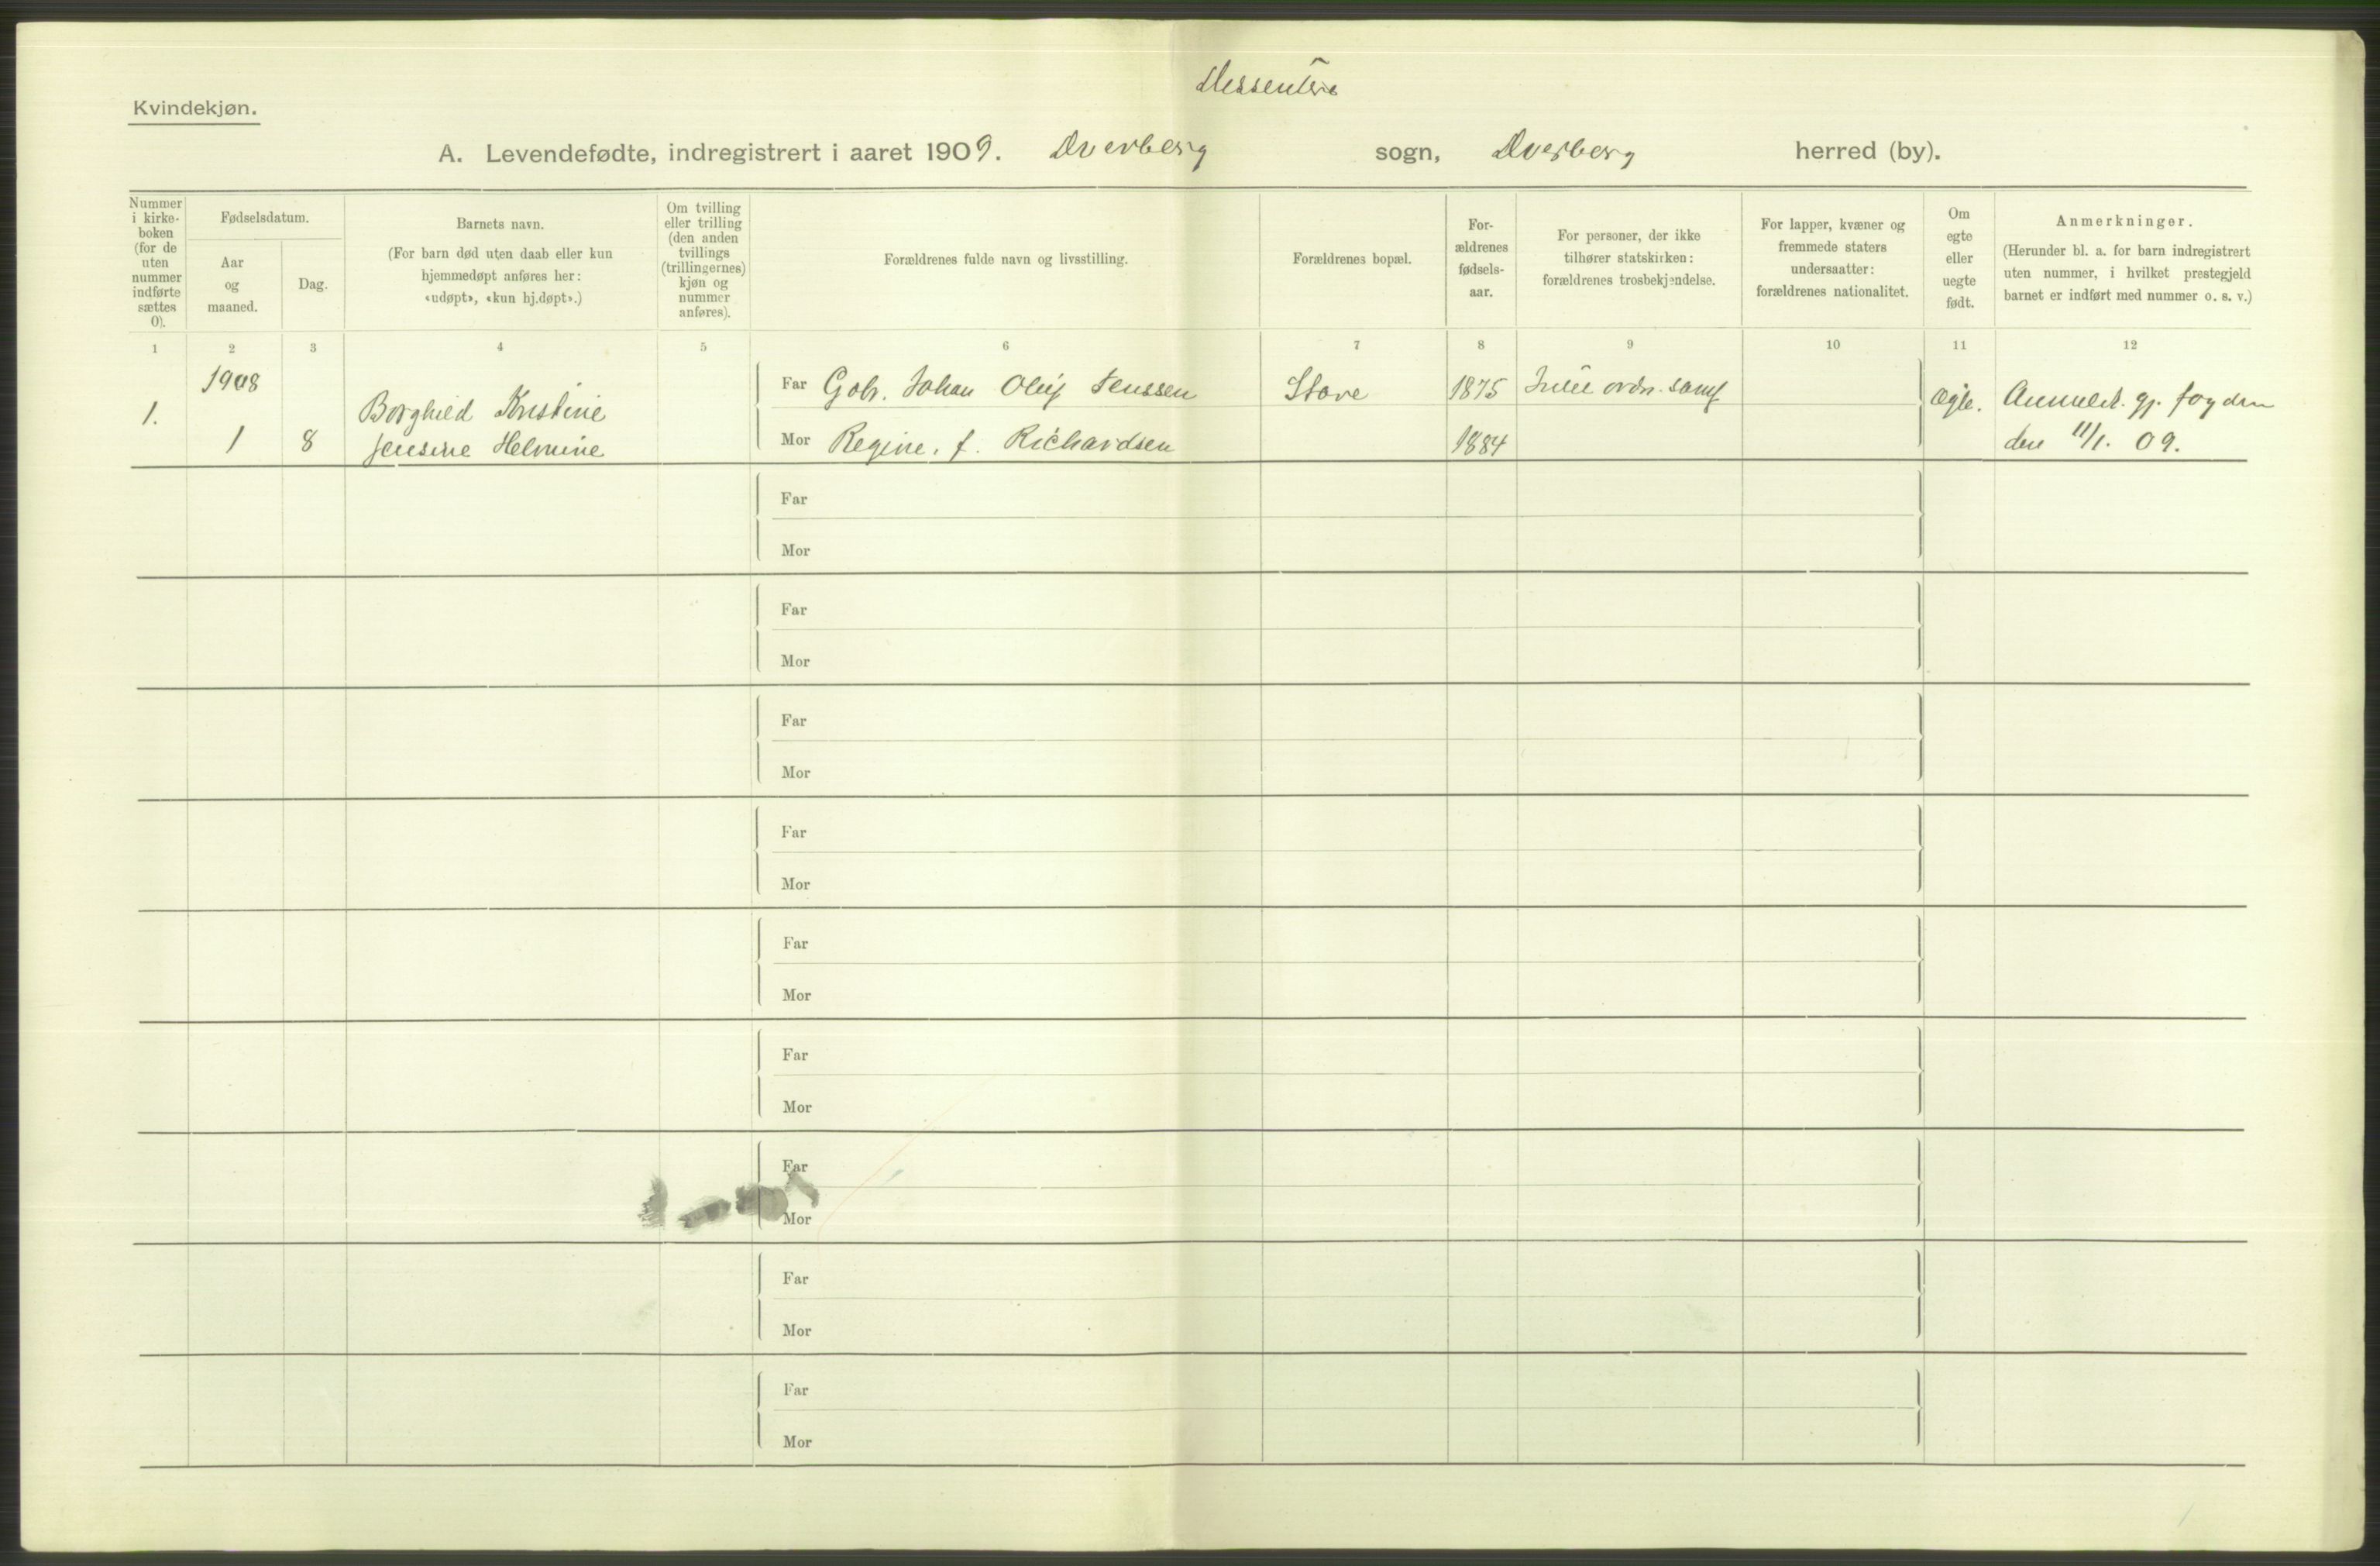 Dissentere
Kvindekjøn.
A. Levendefødte, indregistrert i aaret 1909. Dverberg sogn, Dverberg herred (by).
Nummer
i kirke-
boken
(for de
uten
nummer
indførte
sættes
0).
Fødselsdatum.
Aar
og
maaned.
Dag.
Barnets navn.
(For barn død uten daab eller kun
hjemmedøpt anføres her:
«udøpt», «kun hj.døpt».)
Om tvilling
eller trilling
(den anden
tvillings
(trillingernes)
kjøn og
nummer
anføres).
Forældrenes fulde navn og livsstilling.
Forældrenes bopæl.
For-
ældrenes
fødsels-
aar.
For personer, der ikke
tilhører statskirken:
forældrenes trosbekjendelse.
For lapper, kvæner og
fremmede staters
undersaatter:
forældrenes nationalitet.
Om
egte
eller
uegte
født.
Anmerkninger.
(Herunder bl. a. for barn indregistrert
uten nummer, i hvilket prestegjeld
barnet er indført med nummer o. s. v.)
1 2 3 4 5 6 7 8 9 10 11 12
1908
1.
1 8
Borghild Kristine
Jensine Helmine
Far Gbr. Johan Oluf Jenssen Stave 1875
Mor Regine, f. Richardsen 1884
Ægte.
Anmeldt gj.
den 11/1. 09.
Far
Mor
Far
Mor
Far
Mor
Far
Mor
Far
Mor
Far
Mor
Far
Mor
Far
Mor
Far
Mor